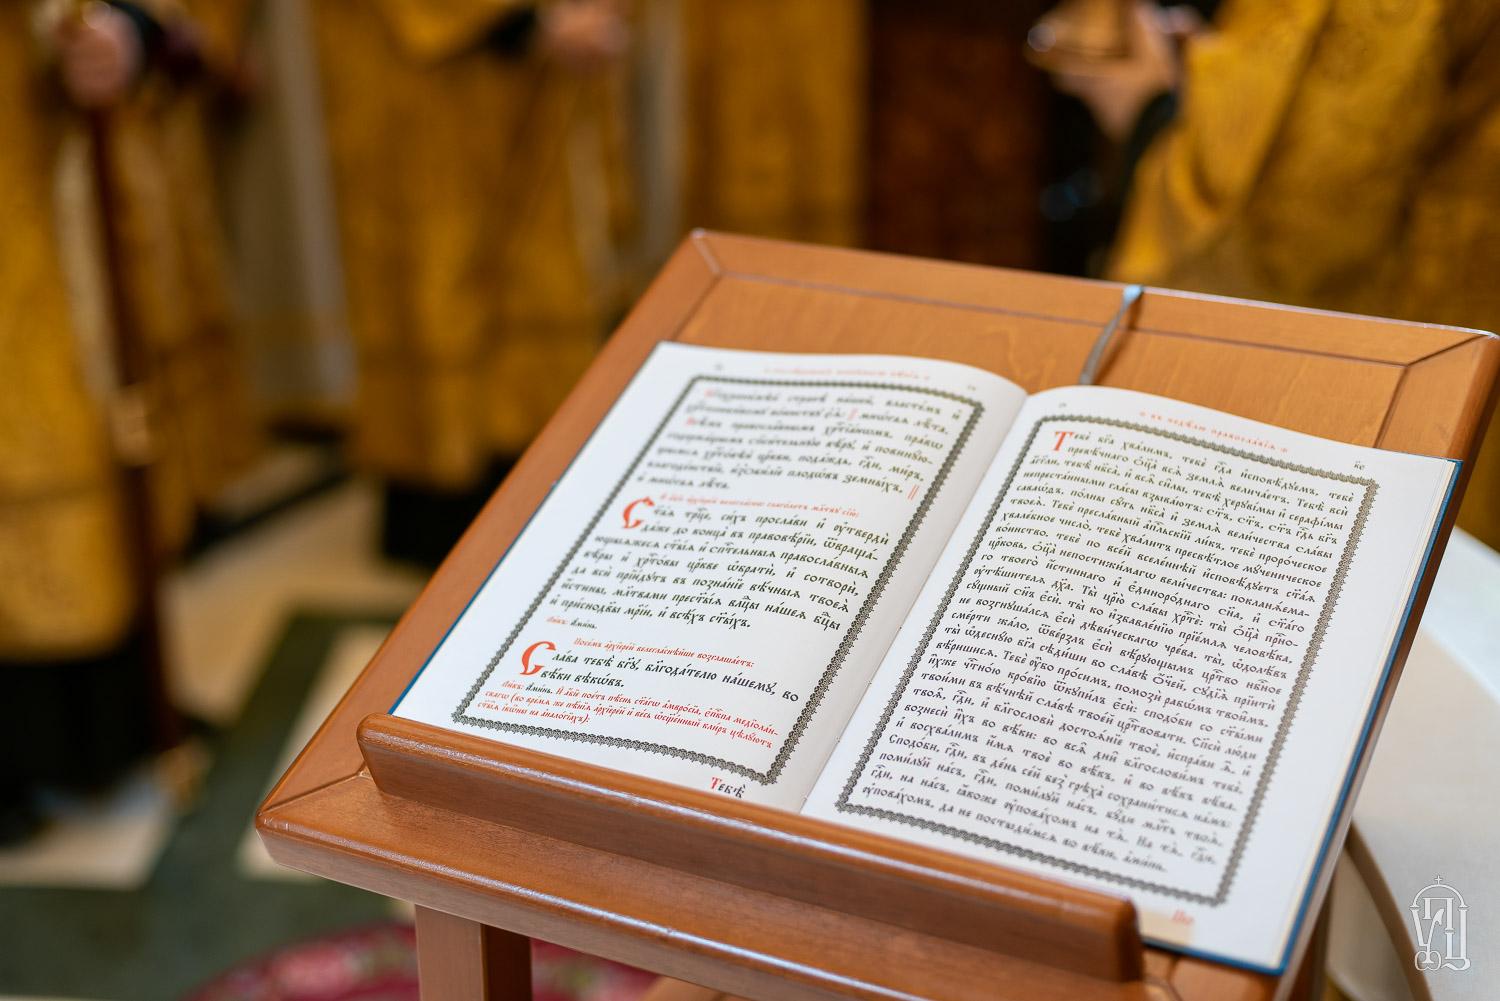 вѣ́мъ правосла́внымъ хрⷭ҇тїа́нѡмъ, пра́вѡ
содержа́щымъ спаси́тельную вѣ́ру, и҆ повину́ю-
щымсѧ хрⷭ҇то́вѣ цр҃кви, пода́ждь, гдⷭ҇и, ми́ръ,
благоде́нствїе, и҆з̾ѻби́лїе плодѡ́въ земны́хъ,
и҆ мнѡ́гаѧ лѣ̑та.
Ст҃а́ѧ трⷪ҇це, си́хъ просла́ви и҆ ᲂу҆твердѝ
да́же до конца̀ въ правовѣ́рїи, ѿвраща́-
вѣ́ры и҆ хрⷭ҇то́вы цр҃кве ѡ҆братѝ, и҆ сотворѝ,
да всѝ прїи́дꙋтъ въ позна́нїе вѣ́чныѧ твоеѧ̀
и҆́стины, мл҃твами прест҃ы́ѧ влⷣчцы на́шеѧ бцⷣы
и҆ приснодв҃ы мр҃і́и, и҆ всѣ́хъ ст҃ы́хъ.
Ли́къ: А҆ми́нь.
Посе́мъ а҆рхїере́й велегла́снѣйши возглаша́етъ:
Сла́ва тебѣ̀ бг҃ꙋ, благода́телю на́шемꙋ, во
вѣ́ки вѣкѡ́въ.
Ли́къ: А҆ми́нь. И҆ а҆́бїе пою́тъ пѣ́снь ст҃а́гѡ а҆мвро́сїа, є҆пⷭ҇кпа медїола́н-
скагѡ (во вре́мѧ же пѣ́нїѧ а҆рхїере́й и҆ ве́сь ѡ҆сщ҃е́нный кли́ръ цѣлꙋ́ютъ
ст҃ы̑ѧ і҆кѡ́ны на а҆налогі́ахъ):
Тебѐ
въ недѣ́лю правосла́вїѧ
к҃е
Тебѐ бг҃а хва́лимъ, тебѐ гдⷭ҇а и҆сповѣ́дꙋемъ, тебѐ
превѣ́чнаго ѻ҆ц҃а̀ всѧ̀ землѧ̀ велича́етъ. Тебѣ̀ всѝ
а҆́гг҃ли, тебѣ̀ нб҃са̀, и҆ всѧ̑ си̑лы, тебѣ̀ херꙋві́мы и҆ серафі́мы
непреста́нными гла́сы взыва́ютъ: ст҃ъ, ст҃ъ, ст҃ъ гдⷭ҇ь бг҃ъ
саваѡ́ѳъ, пѡ́лны сꙋ́ть нб҃са̀ и҆ землѧ̀ вели́чества сла́вы
твоеѧ̀. Тебѐ пресла́вный а҆пⷭ҇льскїй ли́къ, тебѐ прⷪ҇ро́ческое
хвале́бное число̀, тебѐ хва́литъ пресвѣ́тлое мꙋ́ченическое
во́инство, тебѐ по все́й вселе́ннѣй и҆сповѣ́дꙋетъ ст҃а́ѧ
цр҃ковь, ѻ҆ц҃а̀ непостижи́магѡ вели́чества: покланѧ́ема-
го твоего̀ и҆́стиннаго и҆ є҆диноро́днаго сн҃а, и҆ ст҃а́го
ᲂу҆тѣ́шителѧ дх҃а. Ты̀ цр҃ю̀ сла́вы хрⷭ҇тѐ: ты̀ ѻ҆ц҃а̀ прⷭ҇но-
сꙋ́щный сн҃ъ є҆сѝ. ты̀ ко и҆збавле́нїю прїе́млѧ человѣ́ка,
не возгнꙋша́лсѧ є҆сѝ дѣви́ческагѡ чре́ва. ты̀, ѡ҆долѣ́въ
сме́рти жа́ло, ѿве́рзлъ є҆сѝ вѣ́рꙋющымъ црⷭ҇тво нбⷭ҇ное
ты̀ ѡ҆деснꙋ́ю бг҃а сѣди́ши во сла́вѣ ѻ҆́ч҃ей, сꙋдїѧ̀ прїитѝ
вѣ́ришисѧ. Тебѐ ᲂу҆̀бо про́симъ, помозѝ рабѡ́мъ твои̑мъ,
и҆̀хже чтⷭ҇но́ю кро́вїю и҆скꙋпи́лъ є҆сѝ: сподо́би со ст҃ы́ми
твои́ми въ вѣ́чнѣй сла́вѣ твое́й црⷭ҇твовати. Сп҃сѝ лю́ди
твоѧ̑, гдⷭ҇и, и҆ блгⷭ҇вѝ достоѧ́нїе твоѐ, и҆спра́ви ѧ҆̀, и҆
вознесѝ и҆̀хъ во вѣ́ки: во всѧ̑ дни̑ блгⷭ҇ви́мъ тебѐ,
и҆ восхва́лимъ и҆́мѧ твоѐ во вѣ́къ, и҆ во вѣ́къ вѣ́ка.
Сподо́би, гдⷭ҇и, въ де́нь се́й без̾ грѣха̀ сохрани́тисѧ на́мъ:
поми́лꙋй на́съ, гдⷭ҇и, поми́лꙋй на́съ, бꙋ́ди млⷭ҇ть твоѧ̀,
гдⷭ҇и, на на́съ, ꙗ҆́коже ᲂу҆пова́хомъ на тѧ̀. На тѧ̀, гдⷭ҇и,
ᲂу҆пова́хомъ, да не постыди́мсѧ во вѣ́ки, а҆ми́нь.